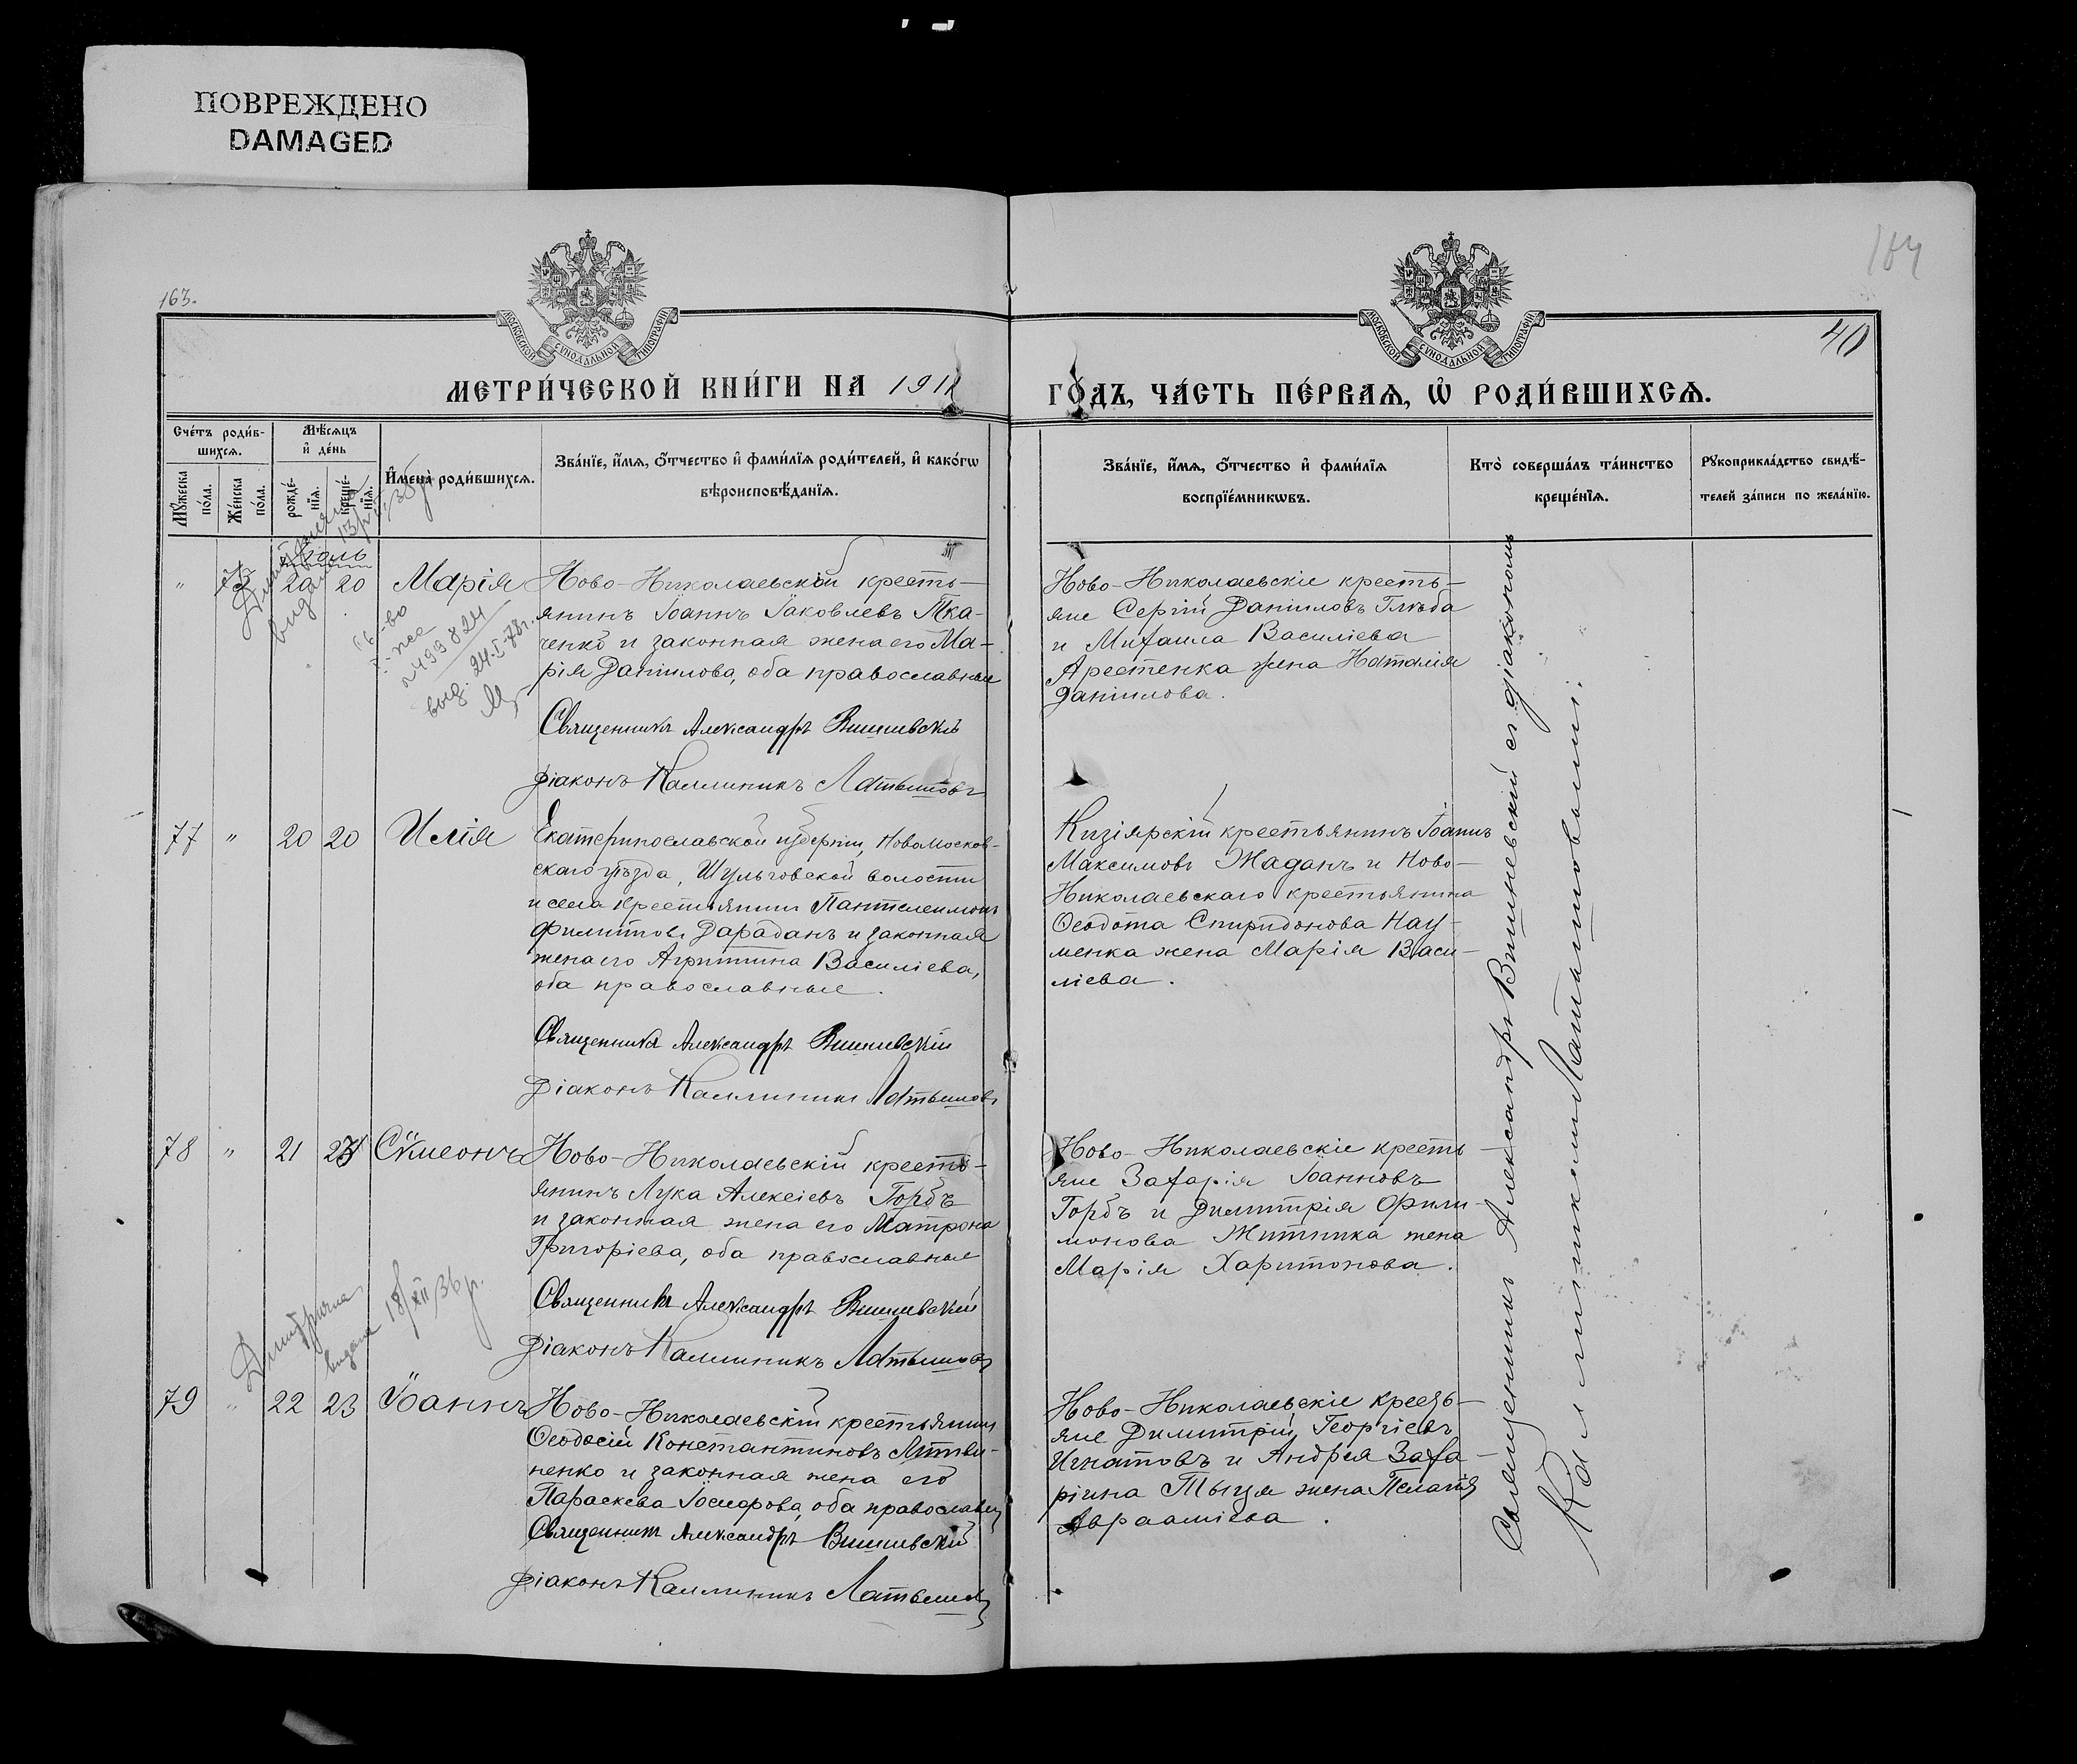 ПОВРЕЖДЕНО
DAMAGED
163.
МОСКОВСКОЙ СУНОДАЛЬНОЙ ТИПОГРАФІИ
МОСКОВСКОЙ СУНОДАЛЬНОЙ ТИПОГРАФІИ
40
МЕТРИ́ЧЕСКОЙ КНИ́ГИ НА 1911
ГО́ДЪ, ЧА́СТЬ ПЕ́РВАѦ, Ѡ РОДИ́ВШИХСѦ.
Сче́тъ роди́вшихсѧ.
Мѣ́сѧцъ и де́нь
Мꙋ́жеска по́ла.
Же́нска по́ла.
рожде́нїѧ.
креще́нїѧ.
Имена̀ роди́вшихсѧ.
Зва́нїе, и́мѧ, ѻ́тчество и фами́лїѧ роди́телей, и како́гѡ
вѣроисповѣ́данїѧ.
Зва́нїе, и́мѧ, ѻ́тчество и фами́лїѧ
воспрїе́мникѡвъ.
Кто̀ соверша́лъ та́инство
креще́нїѧ.
Рꙋкоприкла́дство свидѣ́-
телей за́писи по жела́нїю.
20 20 Марія
Ново-Николаевскій кресть-
янинъ Іоаннъ Іаковлевъ Тка-
ченко и законная жена его Ма-
рія Даніилова, оба православные
Священникъ Александръ Вишневскій
Діаконъ Каллиникъ Латышовъ
Ново-Николаевскіе кресть-
яне Сергій Даніиловъ Глѣба
и Михаила Василіева
Арестенка жена Наталія
Даніилова.
выд. 24.I.78г.
77 " 20 20 Илія
Екатеринославской губерніи, Новомосков-
скаго уѣзда, Шульговской волости
и села крестьянинъ Пантелеимонъ
Филипповъ Дарадань и законная
жена его Агриппина Василіева,
оба православные.
Священникъ Александръ Вишневскій
Діаконъ Каллиникъ Латышовъ
Кизіярскій крестьянинъ Іоаннъ
Максимовъ Жаданъ и Ново-
Николаевскаго крестьянина
Ѳеодота Спиридонова Нау-
менка жена Марія Васи-
ліева.
78 " 21 Сѵмеонъ
Ново-Николаевскій кресть-
янинъ Лука Алексіевъ Горбъ
и законная жена его Матрона
Григоріева, оба православные
Священникъ Александръ Вишневскій
Діаконъ Каллиникъ Латышовъ
Ново-Николаевскіе кресть-
яне Захарія Іоанновъ
Горбъ и Димитрія Фили-
монова Житника жена
Марія Харитонова.
выдана 18/XII 36 р.
79 " 22 23 Іоаннъ
Ново-Николаевскій крестьянинъ
Ѳеодосій Константиновъ Литви-
ненко и законная жена его
Параскева Іосифова, оба православн
Священникъ Александръ Вишневскій
Діаконъ Каллиникъ Латышовъ
Ново-Николаевскіе кресть-
яне Димитрій Георгіевъ
Игнатовъ и Андрея Заха-
ріина Тыця жена Пелагія
Авраамієва.
Священникъ Александръ Вишневскій съ діакономъ
Каллиникомъ Латышовымъ.